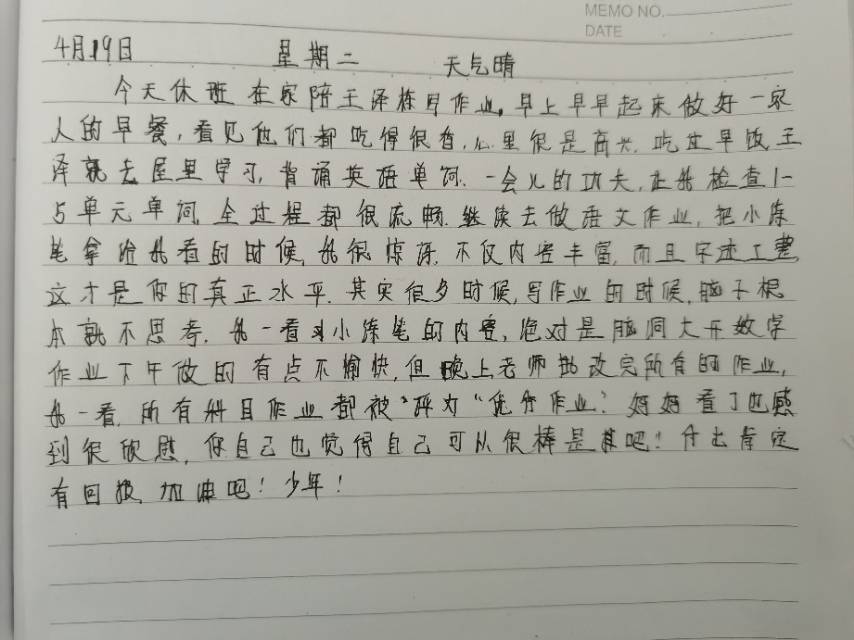 MEMO NO.
DATE
4月19日 星期二 天气晴
今天休班在家陪王泽栋写作业。早上早早起来做好一家
人的早餐,看见他们都吃得很香,心里很是高兴。吃过早饭王
泽就去屋里学习,背诵英语单词.一会儿的功夫,让我检查1-
5单元单词,全过程都很流畅.继续去做语文作业,把小练
笔拿给我看的时候,我很惊讶.不仅内容丰富,而且字迹工整
这才是你的真正水平.其实很多时候,写作业的时候,脑子根
本就不思考.我一看到小练笔的内容,绝对是脑洞大开数学
作业下午做的有点不愉快,但晚上老师批改完所有的作业,
我一看.所有科目作业都被"评为"优分作业".妈妈看了也感
到很欣慰,你自己也觉得自己可以很棒是其吧!付出肯定
有回报,加油吧!少年!